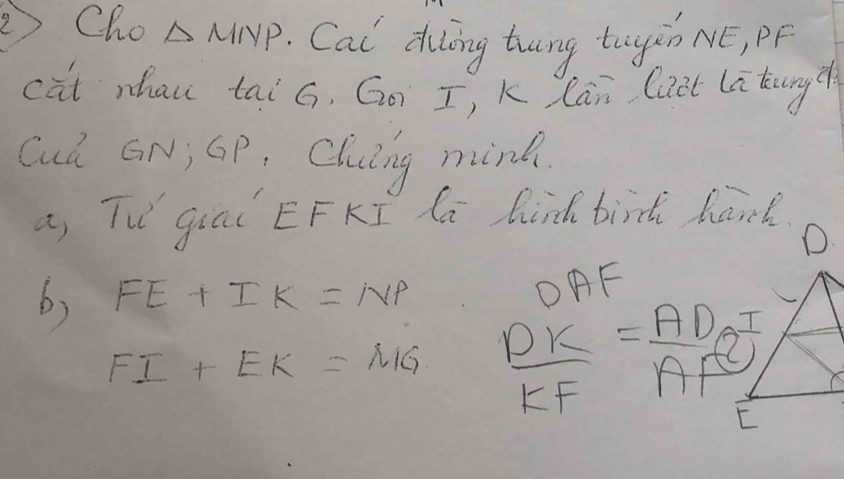 2) Cho △ MNP. Caí đường trung tuyến NE, PF
cắt nhau tại G. Gọi I, K lần lượt là trung đ.
Của GN; GP. Chứng minh.
a, Tứ giác EFKI là hình bình hành.
b, FE + IK = NP
FI + EK = MG
DAF
DK/KF = AD/AF
2
D
I
E